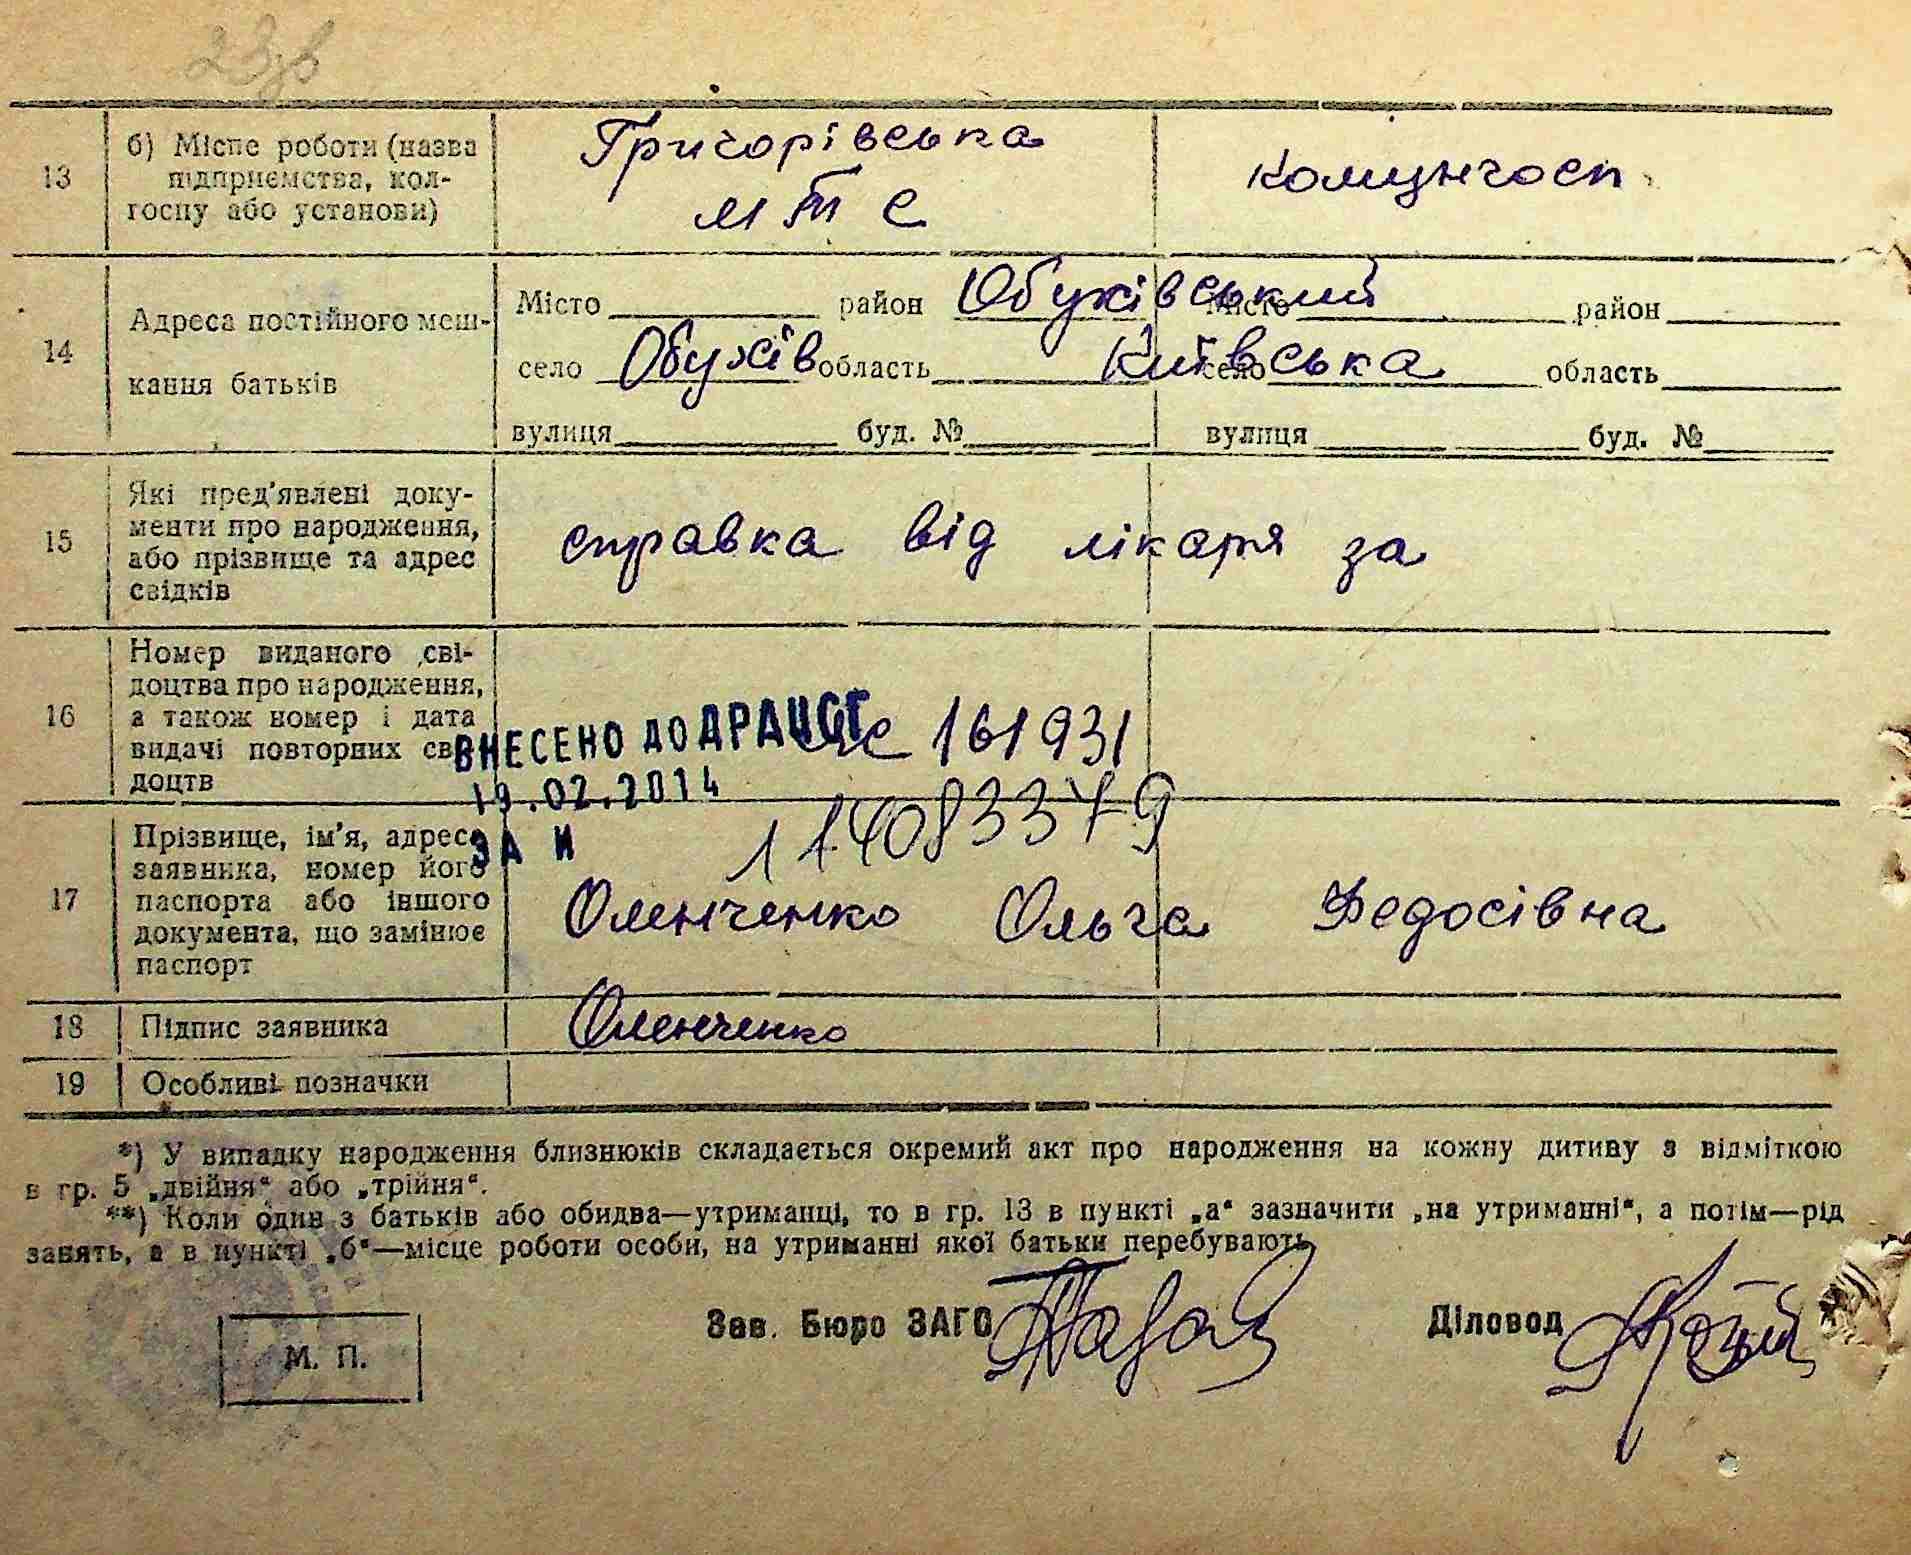 23зв
13
б) Місце роботи (назва
підприємства, кол-
госпу або установи)
Григорівська
МТС
комунгосп
14
Адреса постійного меш-
кання батьків
Місто район Обухівський Місто район
село Обухів область Київська село область
вулиця буд. № вулиця буд. №
15
Які пред'явлені доку-
менти про народження,
або прізвище та адрес
свідків
справка від лікаря за
16
Номер виданого сві-
доцтва про народження,
а також номер і дата
видачі повторних сві-
доцтв
ВНЕСЕНО ДО ДРАЦСГ
19.02.2014
ЗА N
161931
114083379
17
Прізвище, ім'я, адреса
заявника, номер його
паспорта або іншого
документа, що замінює
паспорт
Оленченко Ольга Федосівна
18
Підпис заявника
Оленченко
19
Особливі позначки
*) У випадку народження близнюків складається окремий акт про народження на кожну дитину з відміткою
в гр. 5 „двійня“ або „трійня“.
**) Коли один з батьків або обидва—утриманці, то в гр. 13 в пункті „а“ зазначити „на утриманні“, а потім—рід
занять, а в пункті „б“—місце роботи особи, на утриманні якої батьки перебувають
Зав. Бюро ЗАГС
Діловод
М. П.